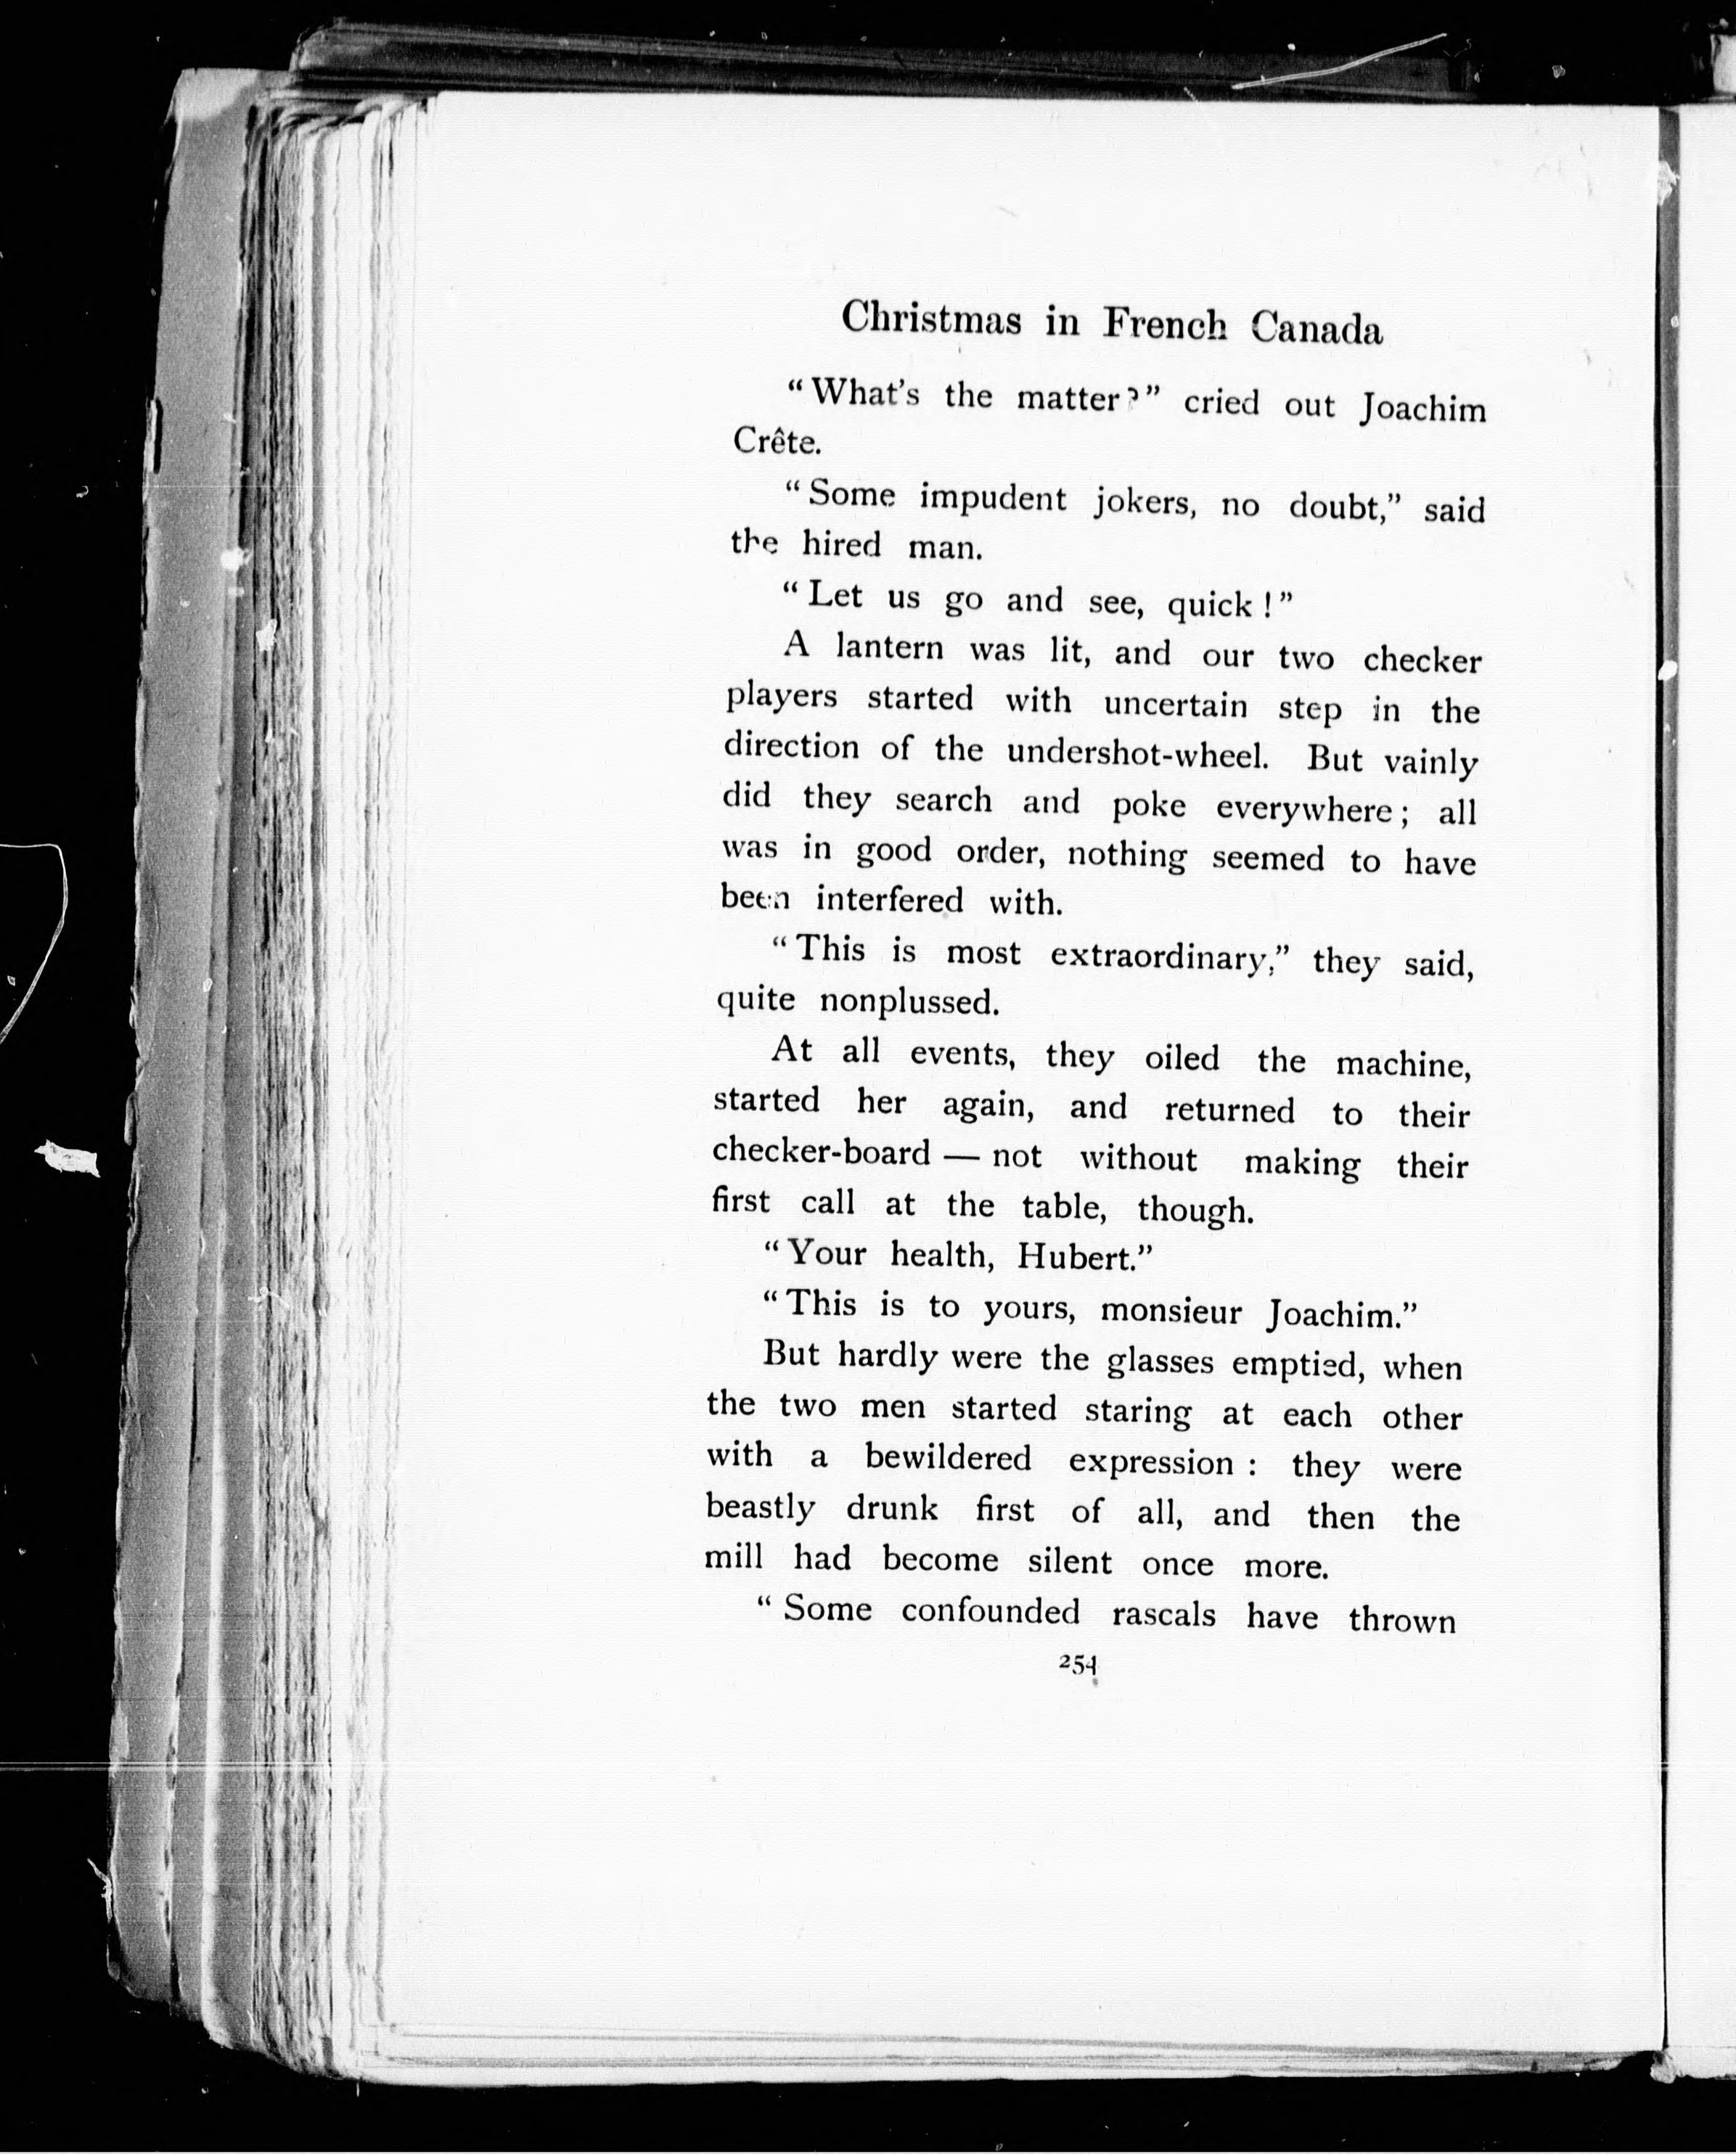 Christmas in French Canada
“What’s the matter?” cried out Joachim
Crête.
“Some impudent jokers, no doubt,” said
the hired man.
“Let us go and see, quick!”
A lantern was lit, and our two checker
players started with uncertain step in the
direction of the undershot-wheel. But vainly
did they search and poke everywhere; all
was in good order, nothing seemed to have
been interfered with.
“This is most extraordinary,” they said,
quite nonplussed.
At all events, they oiled the machine,
started her again, and returned to their
checker-board — not without making their
first call at the table, though.
“Your health, Hubert.”
“This is to yours, monsieur Joachim.”
But hardly were the glasses emptied, when
the two men started staring at each other
with a bewildered expression: they were
beastly drunk first of all, and then the
mill had become silent once more.
“Some confounded rascals have thrown
254